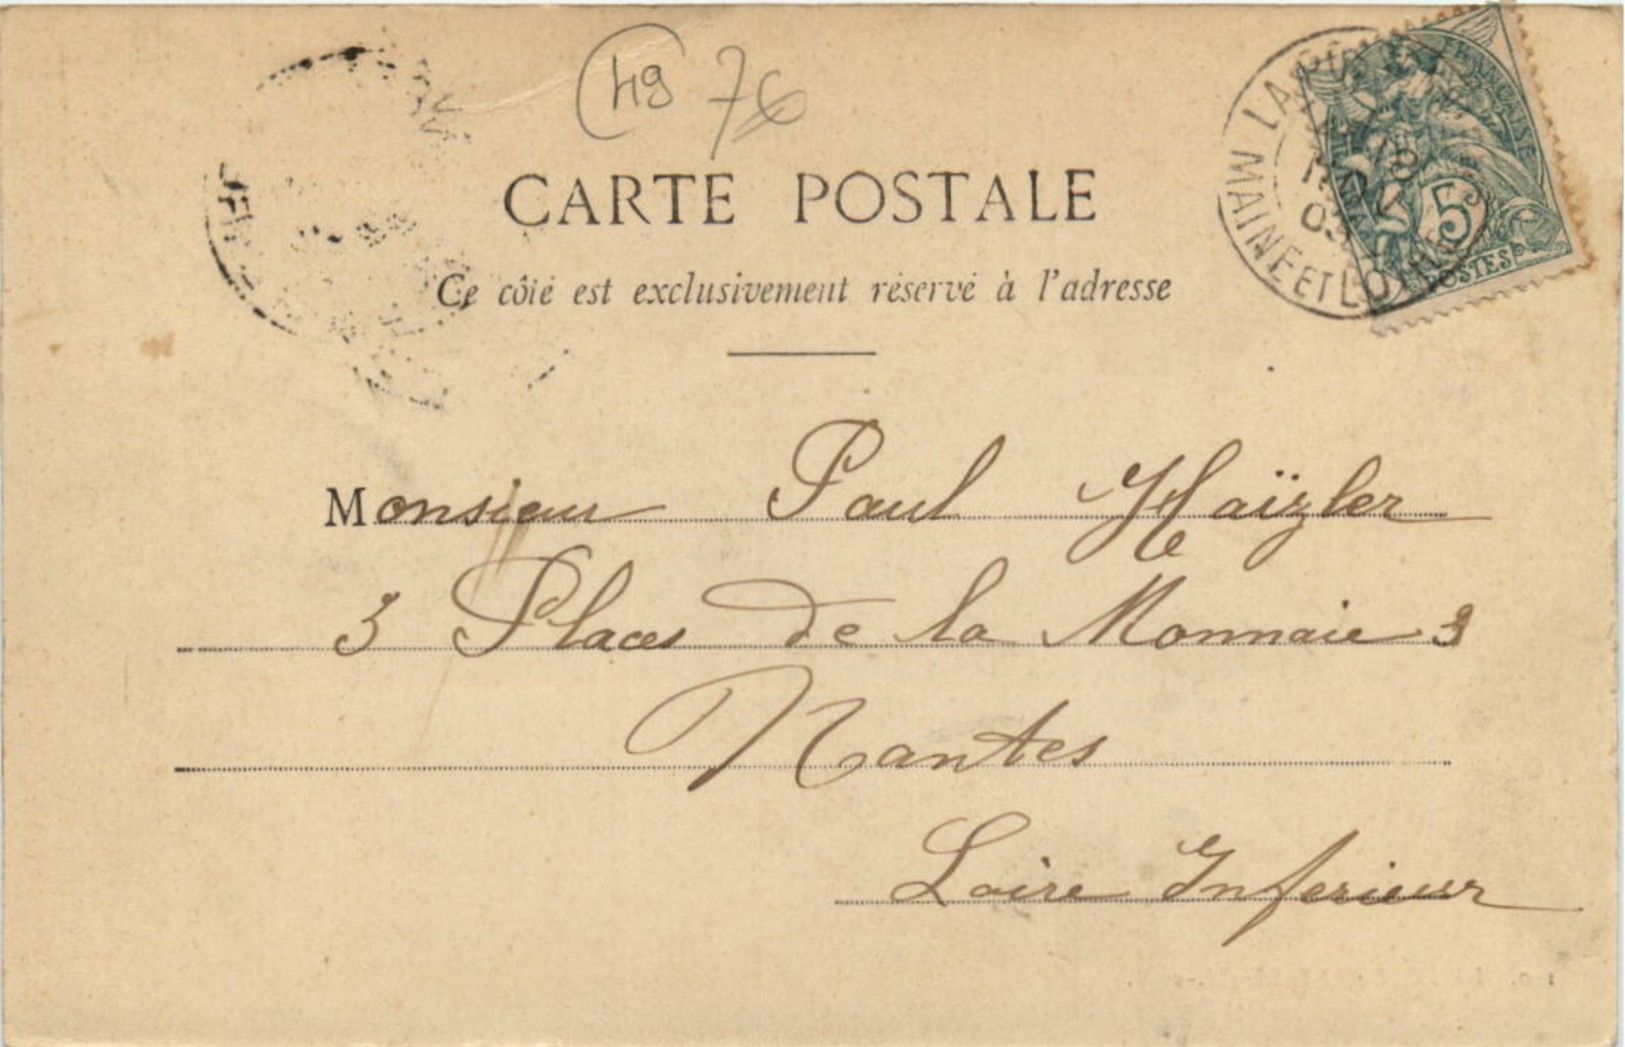 49 76
CARTE POSTALE
Ce côté est exclusivement réservé à l'adresse
FRANÇAISE
5
POSTES
MAINE ET LOIRE
03
Monsieur Paul Haïzler
3 Places de la Monnaie 3
Nantes
Loire Inferieur